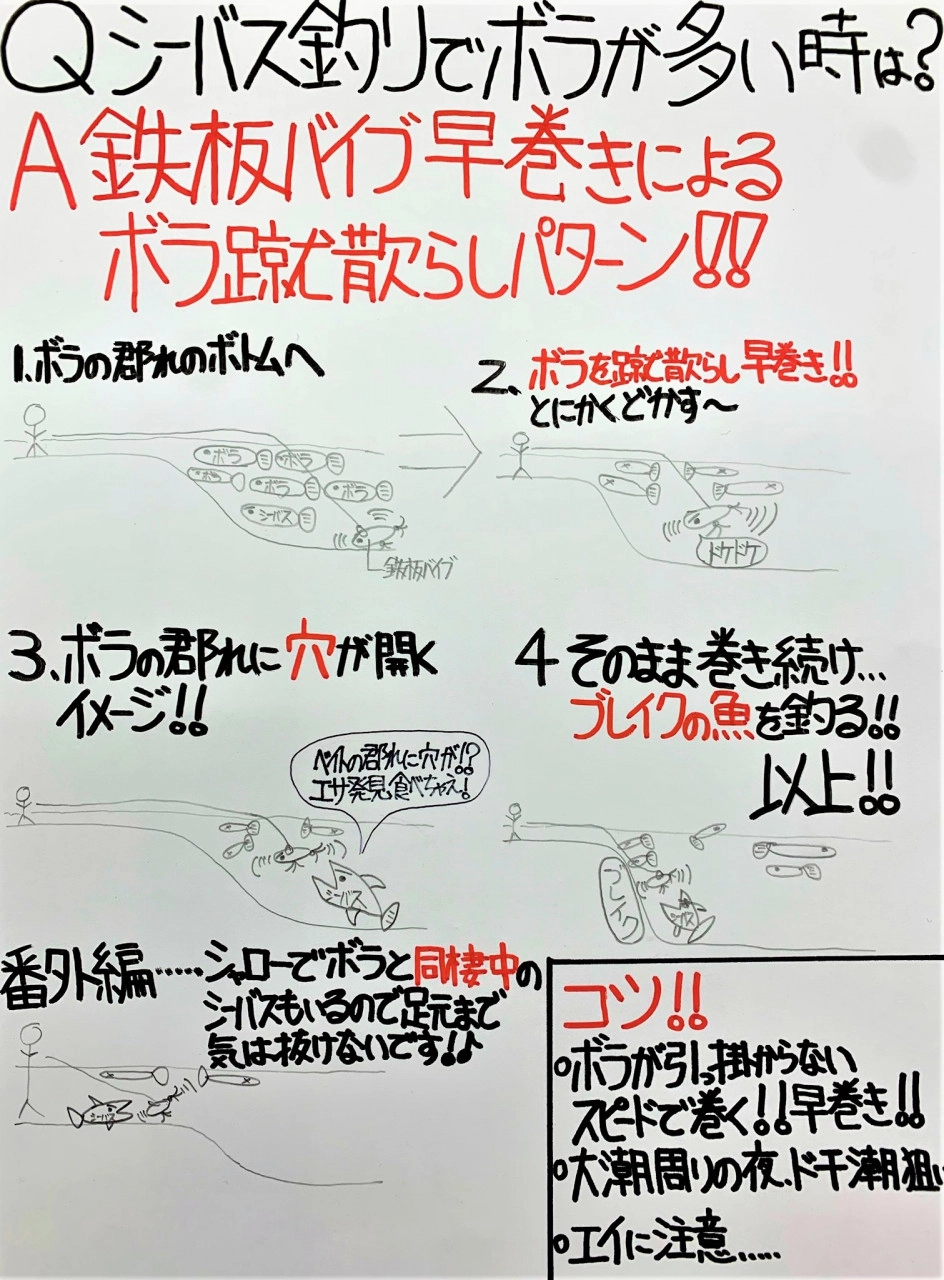 Qシーバス釣りでボラが多い時は?
A鉄板バイブ早巻きによる
ボラ蹴散らしパターン!!
1.ボラの群れのボトムへ
ボラ
ボラ
ボラ
ボラ
ボラ
シーバス
鉄板バイブ
2、ボラを蹴散らし早巻き!!
とにかくどかす〜
ドケドケ
3、ボラの群れに穴が開く
イメージ!!
ベイトの群れに穴が!?
エサ発見、食べちゃえ!
シーバス
4 そのまま巻き続け...
ブレイクの魚を釣る!!
以上!!
ブレイク
番外編……シャローでボラと同棲中の
シーバスもいるので足元まで
気は抜けないです!!♪
シーバス
コツ!!
○ボラが引っ掛からない
スピードで巻く!!早巻き!!
○大潮周りの夜、ド干潮狙い
○エイに注意.....